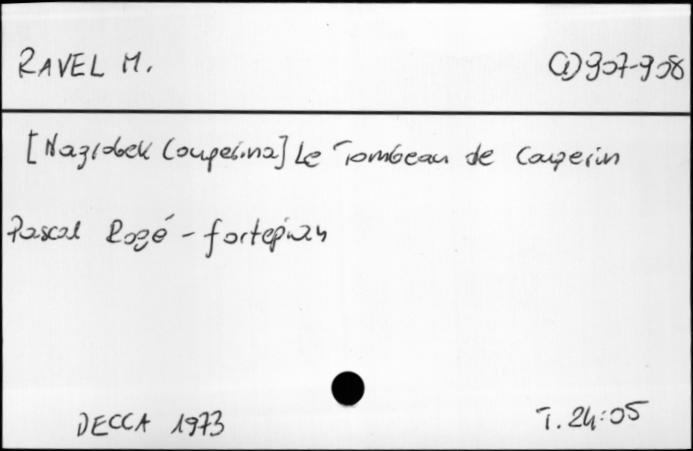 RAVEL M. 907-908
[Nagrobek Couperina] Le Tombeau de Couperin
Pascal Rogé - fortepian
DECCA 1973 T. 24:05